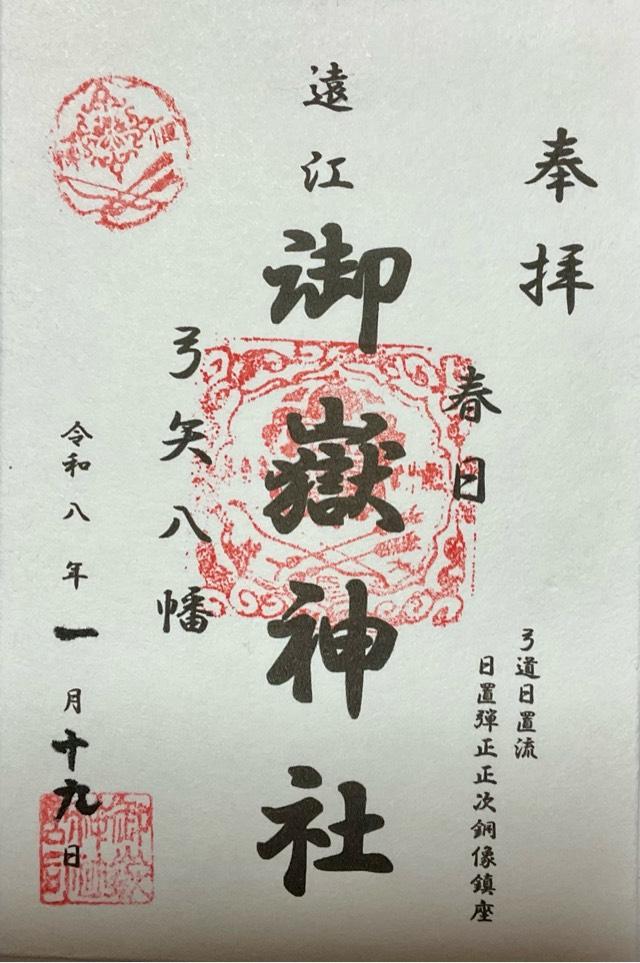 奉拝
春日
弓道日置流
日置弾正正次銅像鎮座
遠江
御嶽神社
弓矢八幡
令和八年一月十九日